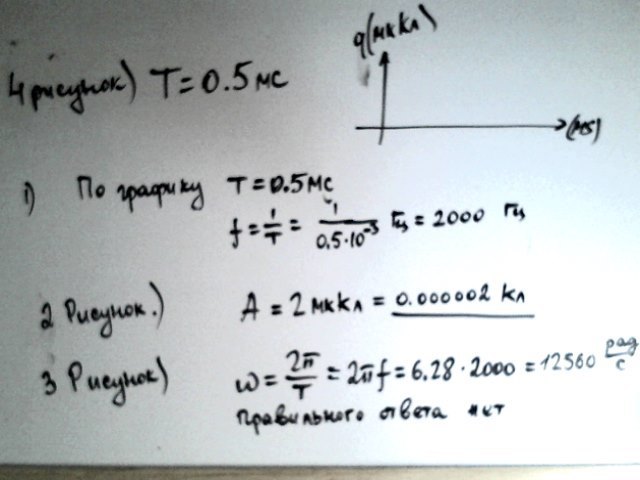 q(мккл)
4 рисунок) T = 0.5 мс
(мs)
1) По графику T = 0.5 мс
f = 1/T = 1/0.5·10⁻³ Гц = 2000 Гц
2 Рисунок.) A = 2 мккл = 0.000002 кл
3 Рисунок) ω = 2π/T = 2πf = 6.28 · 2000 = 12560 рад/с
Правильного ответа нет